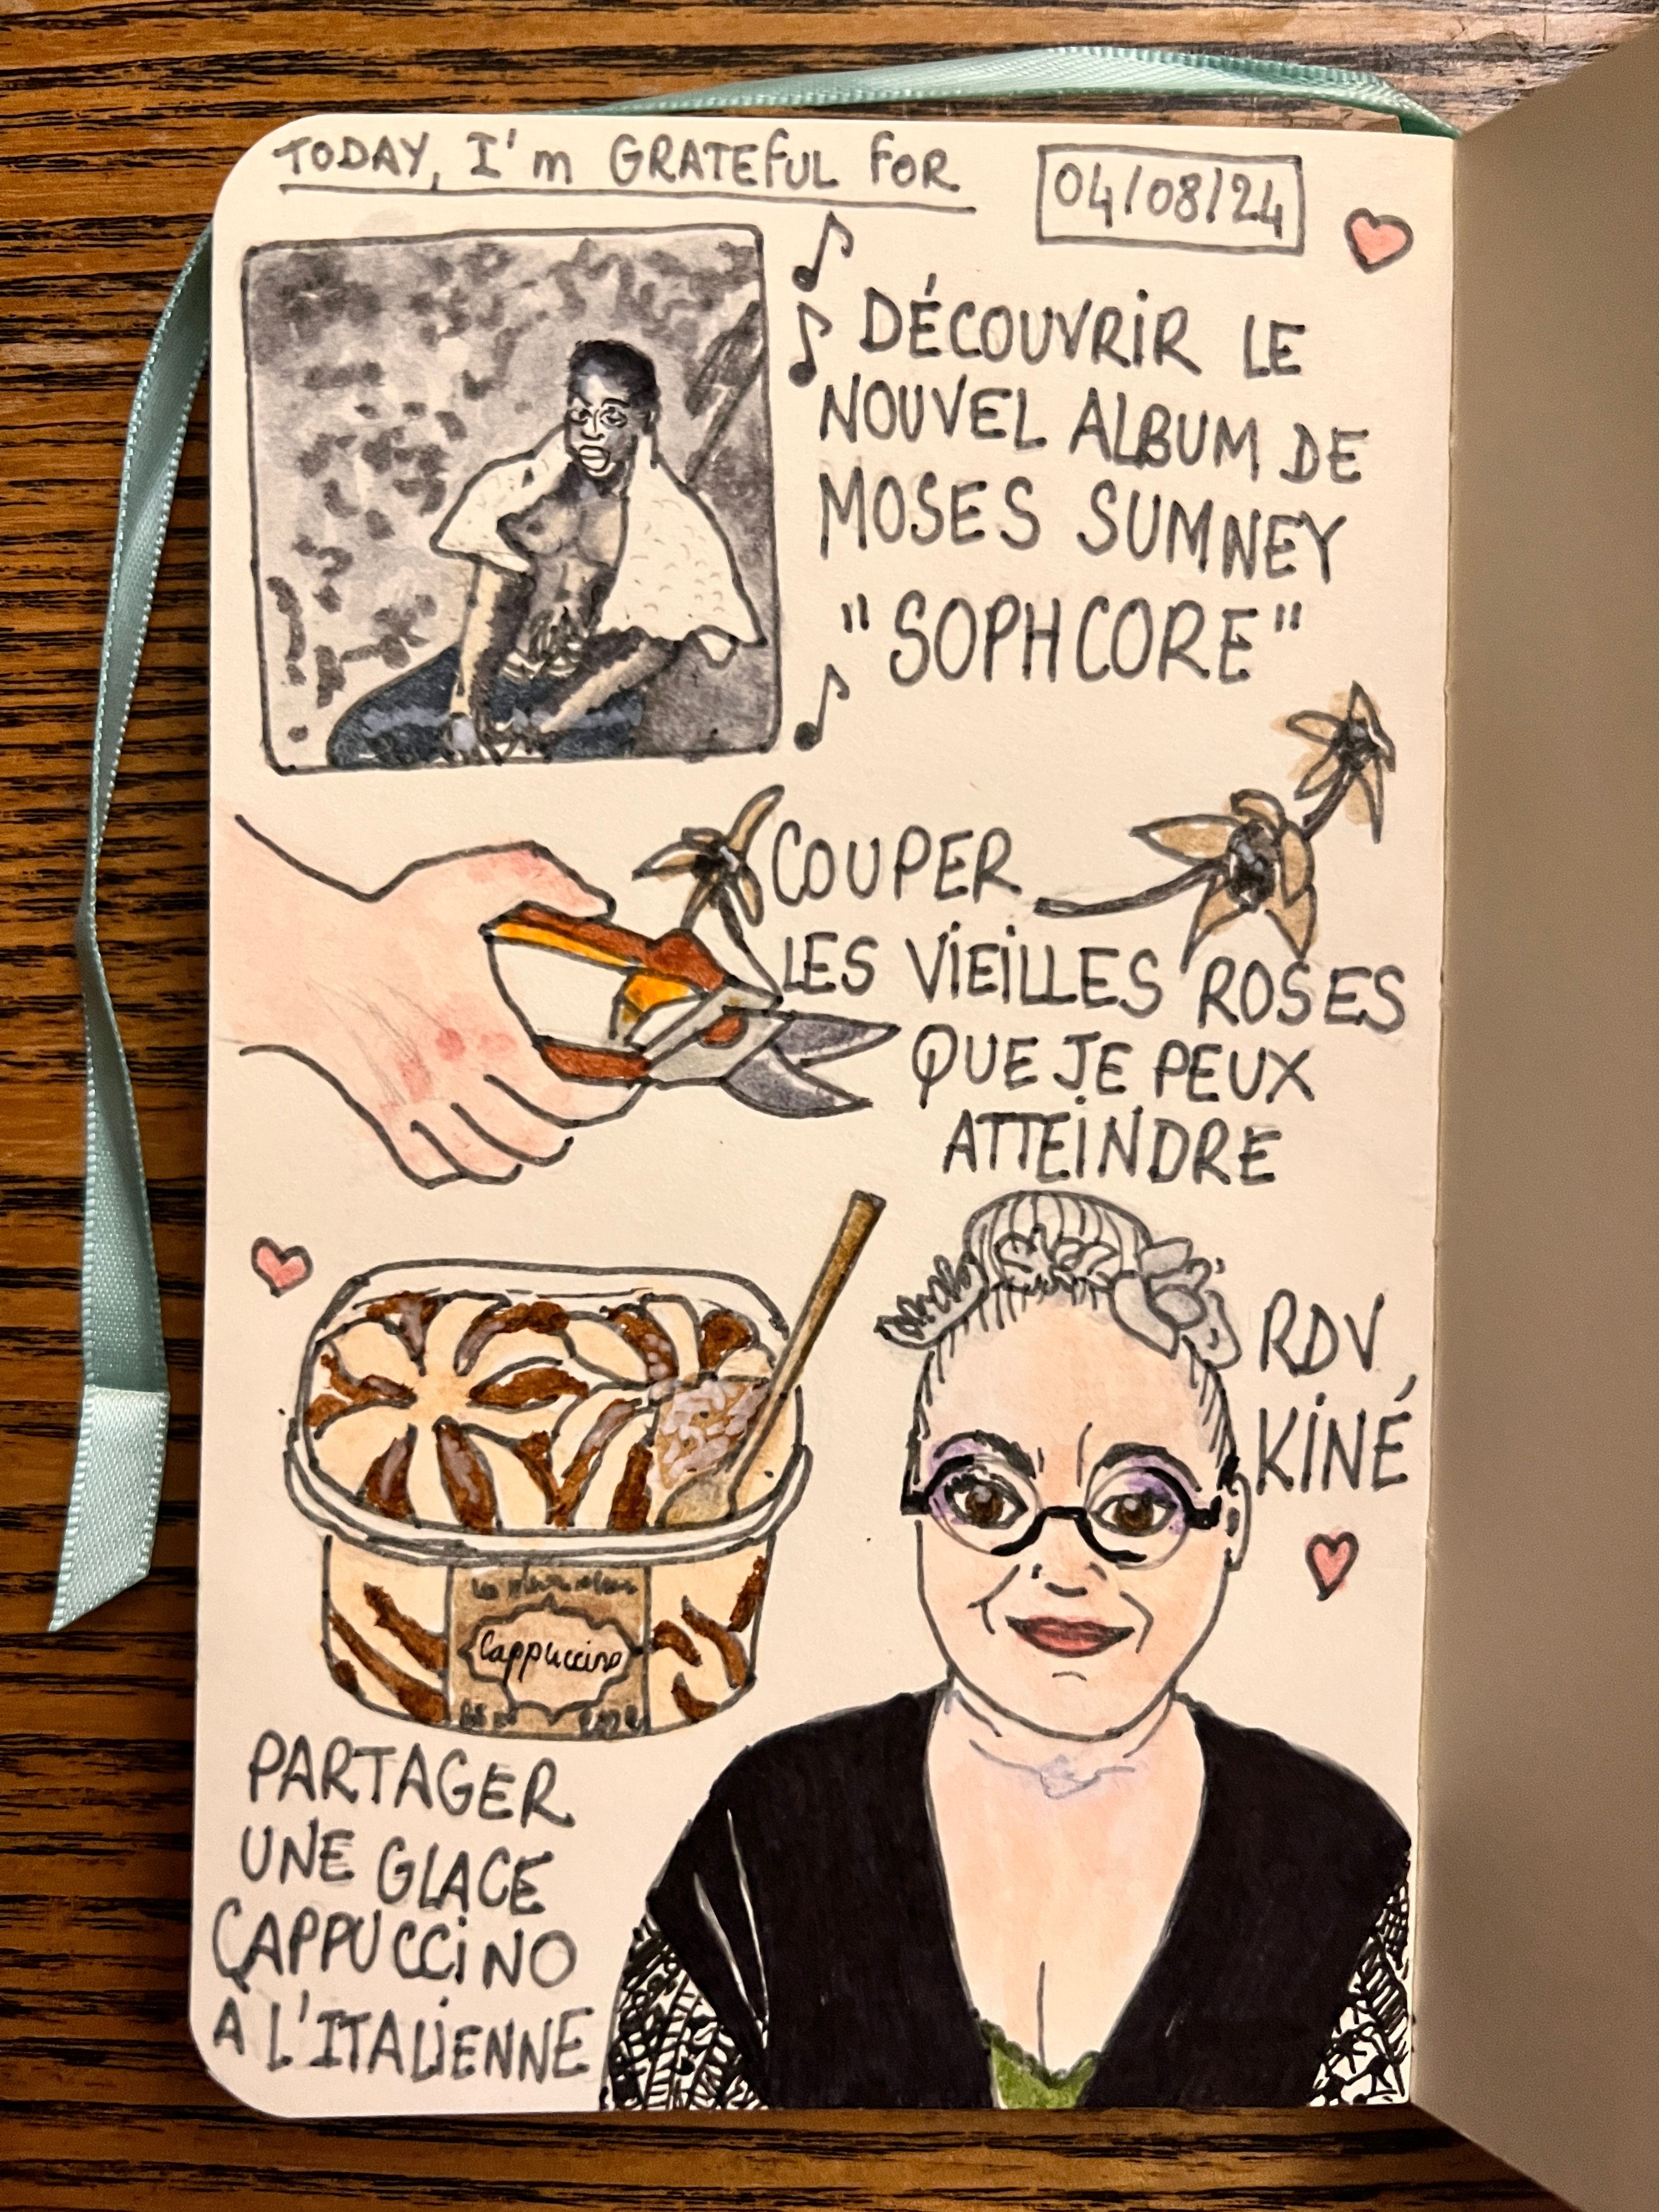 TODAY, I'm GRATEFUL FOR
04/08/24
DÉCOUVRIR LE
NOUVEL ALBUM DE
MOSES SUMNEY
"SOPHCORE"
COUPER
LES VIEILLES ROSES
QUE JE PEUX
ATTEINDRE
Cappuccino
PARTAGER
UNE GLACE
CAPPUCCINO
A L'ITALIENNE
RDV
KINÉ